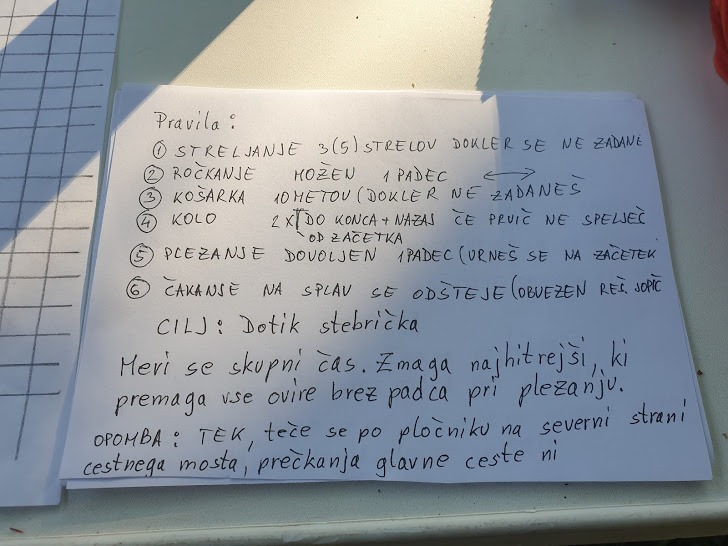 Pravila:
① STRELJANJE 3(5) STRELOV DOKLER SE NE ZADANE
② ROČKANJE MOŽEN 1 PADEC ↔
③ KOŠARKA 10 METOV (DOKLER NE ZADANEŠ
④ KOLO 2X DO KONCA + NAZAJ ČE PRVIČ NE SPELJEČ
OD ZAČETKA
⑤ PLEZANJE DOVOLJEN 1 PADEC (VRNEŠ SE NA ZAČETEK
⑥ ČAKANJE NA SPLAV SE ODŠTEJE (OBVEZEN REŠ. JOPIČ
CILJ: Dotik stebrička
Meri se skupni čas. Zmaga najhitrejši, ki
premaga vse ovire brez padca pri plezanju.
OPOMBA: TEK, teče se po pločniku na severni strani
cestnega mosta, prečkanja glavne ceste ni